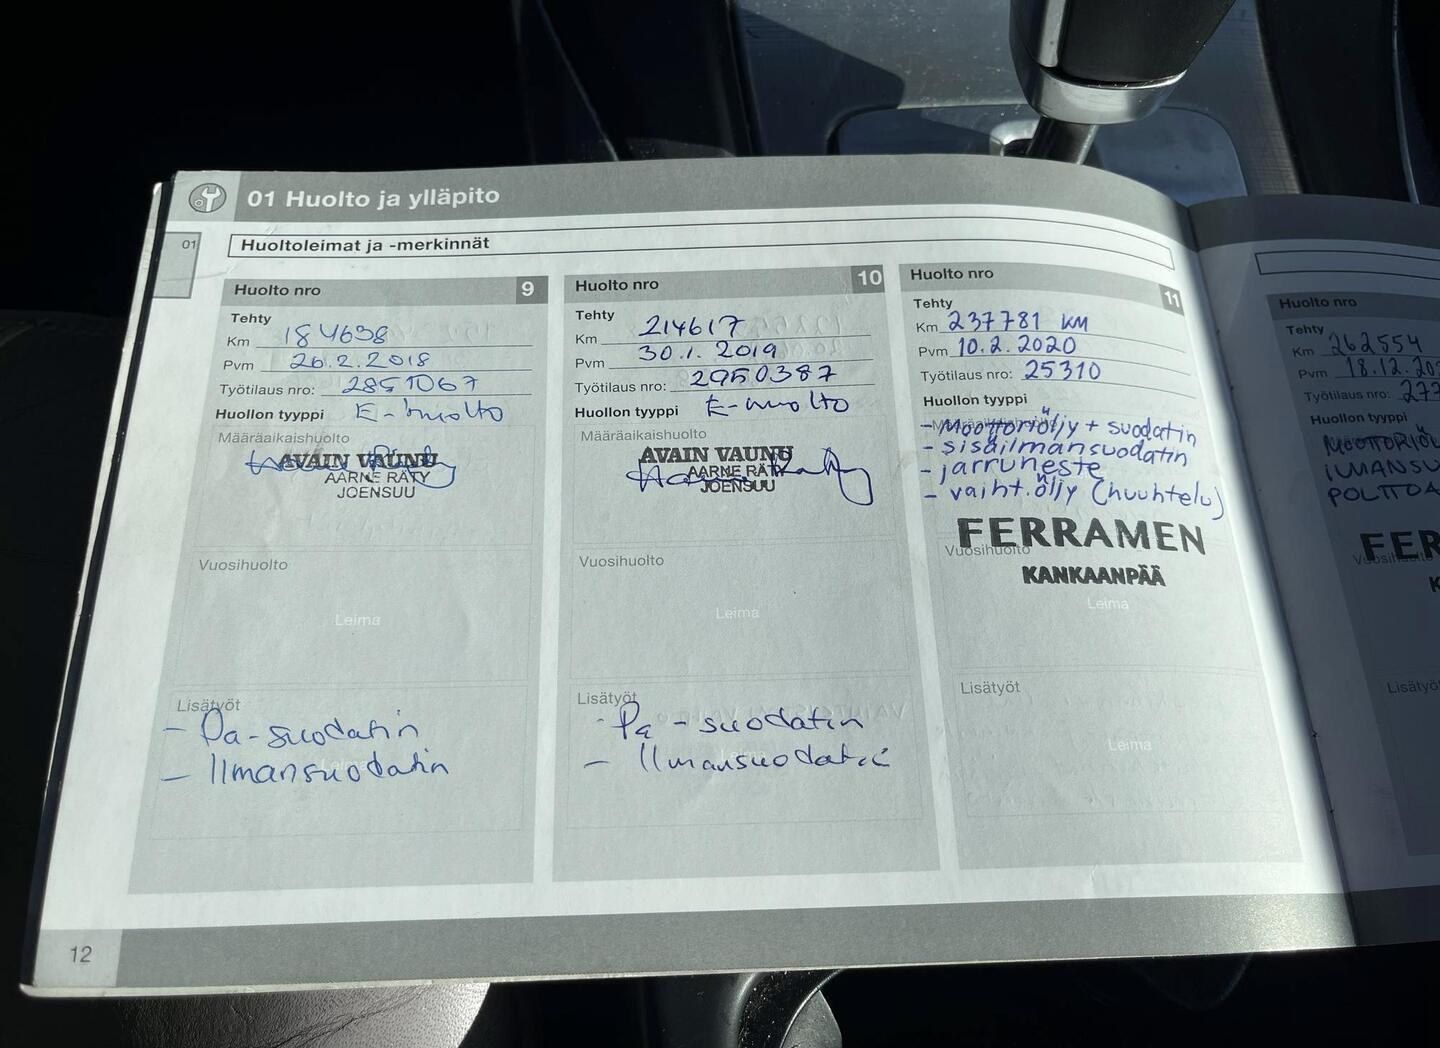 01 Huolto ja ylläpito
01
Huoltoleimat ja -merkinnät
Huolto nro 9
Tehty
Km 184638
Pvm 26.2.2018
Työtilaus nro: 2851067
Huollon tyyppi E-huolto
Määräaikaishuolto
AVAIN VAUNU
AARNE RÄTY
JOENSUU
Vuosihuolto
Leima
Lisätyöt
- Pa-suodatin
- Ilmansuodatin
Huolto nro 10
Tehty
Km 214617
Pvm 30.1.2019
Työtilaus nro: 2950387
Huollon tyyppi E-huolto
Määräaikaishuolto
AVAIN VAUNU
AARNE RÄTY
JOENSUU
Vuosihuolto
Leima
Lisätyöt
- Pa-suodatin
- Ilmansuodatin
Huolto nro 11
Tehty
Km 237781 KM
Pvm 10.2.2020
Työtilaus nro: 25310
Huollon tyyppi
- Moottoriöljy + suodatin
- sisäilmansuodatin
- jarruneste
- vaiht.öljy (huuhtelu)
FERRAMEN
Vuosihuolto
KANKAANPÄÄ
Leima
Lisätyöt
Leima
12
Huolto nro
Tehty
Km 262554
Pvm 18.12.202
Työtilaus nro: 277
Huollon tyyppi
MOOTTORIÖL
ILMANSU
POLTTOA
FER
Vuosihuolto
K
Lisätyöt